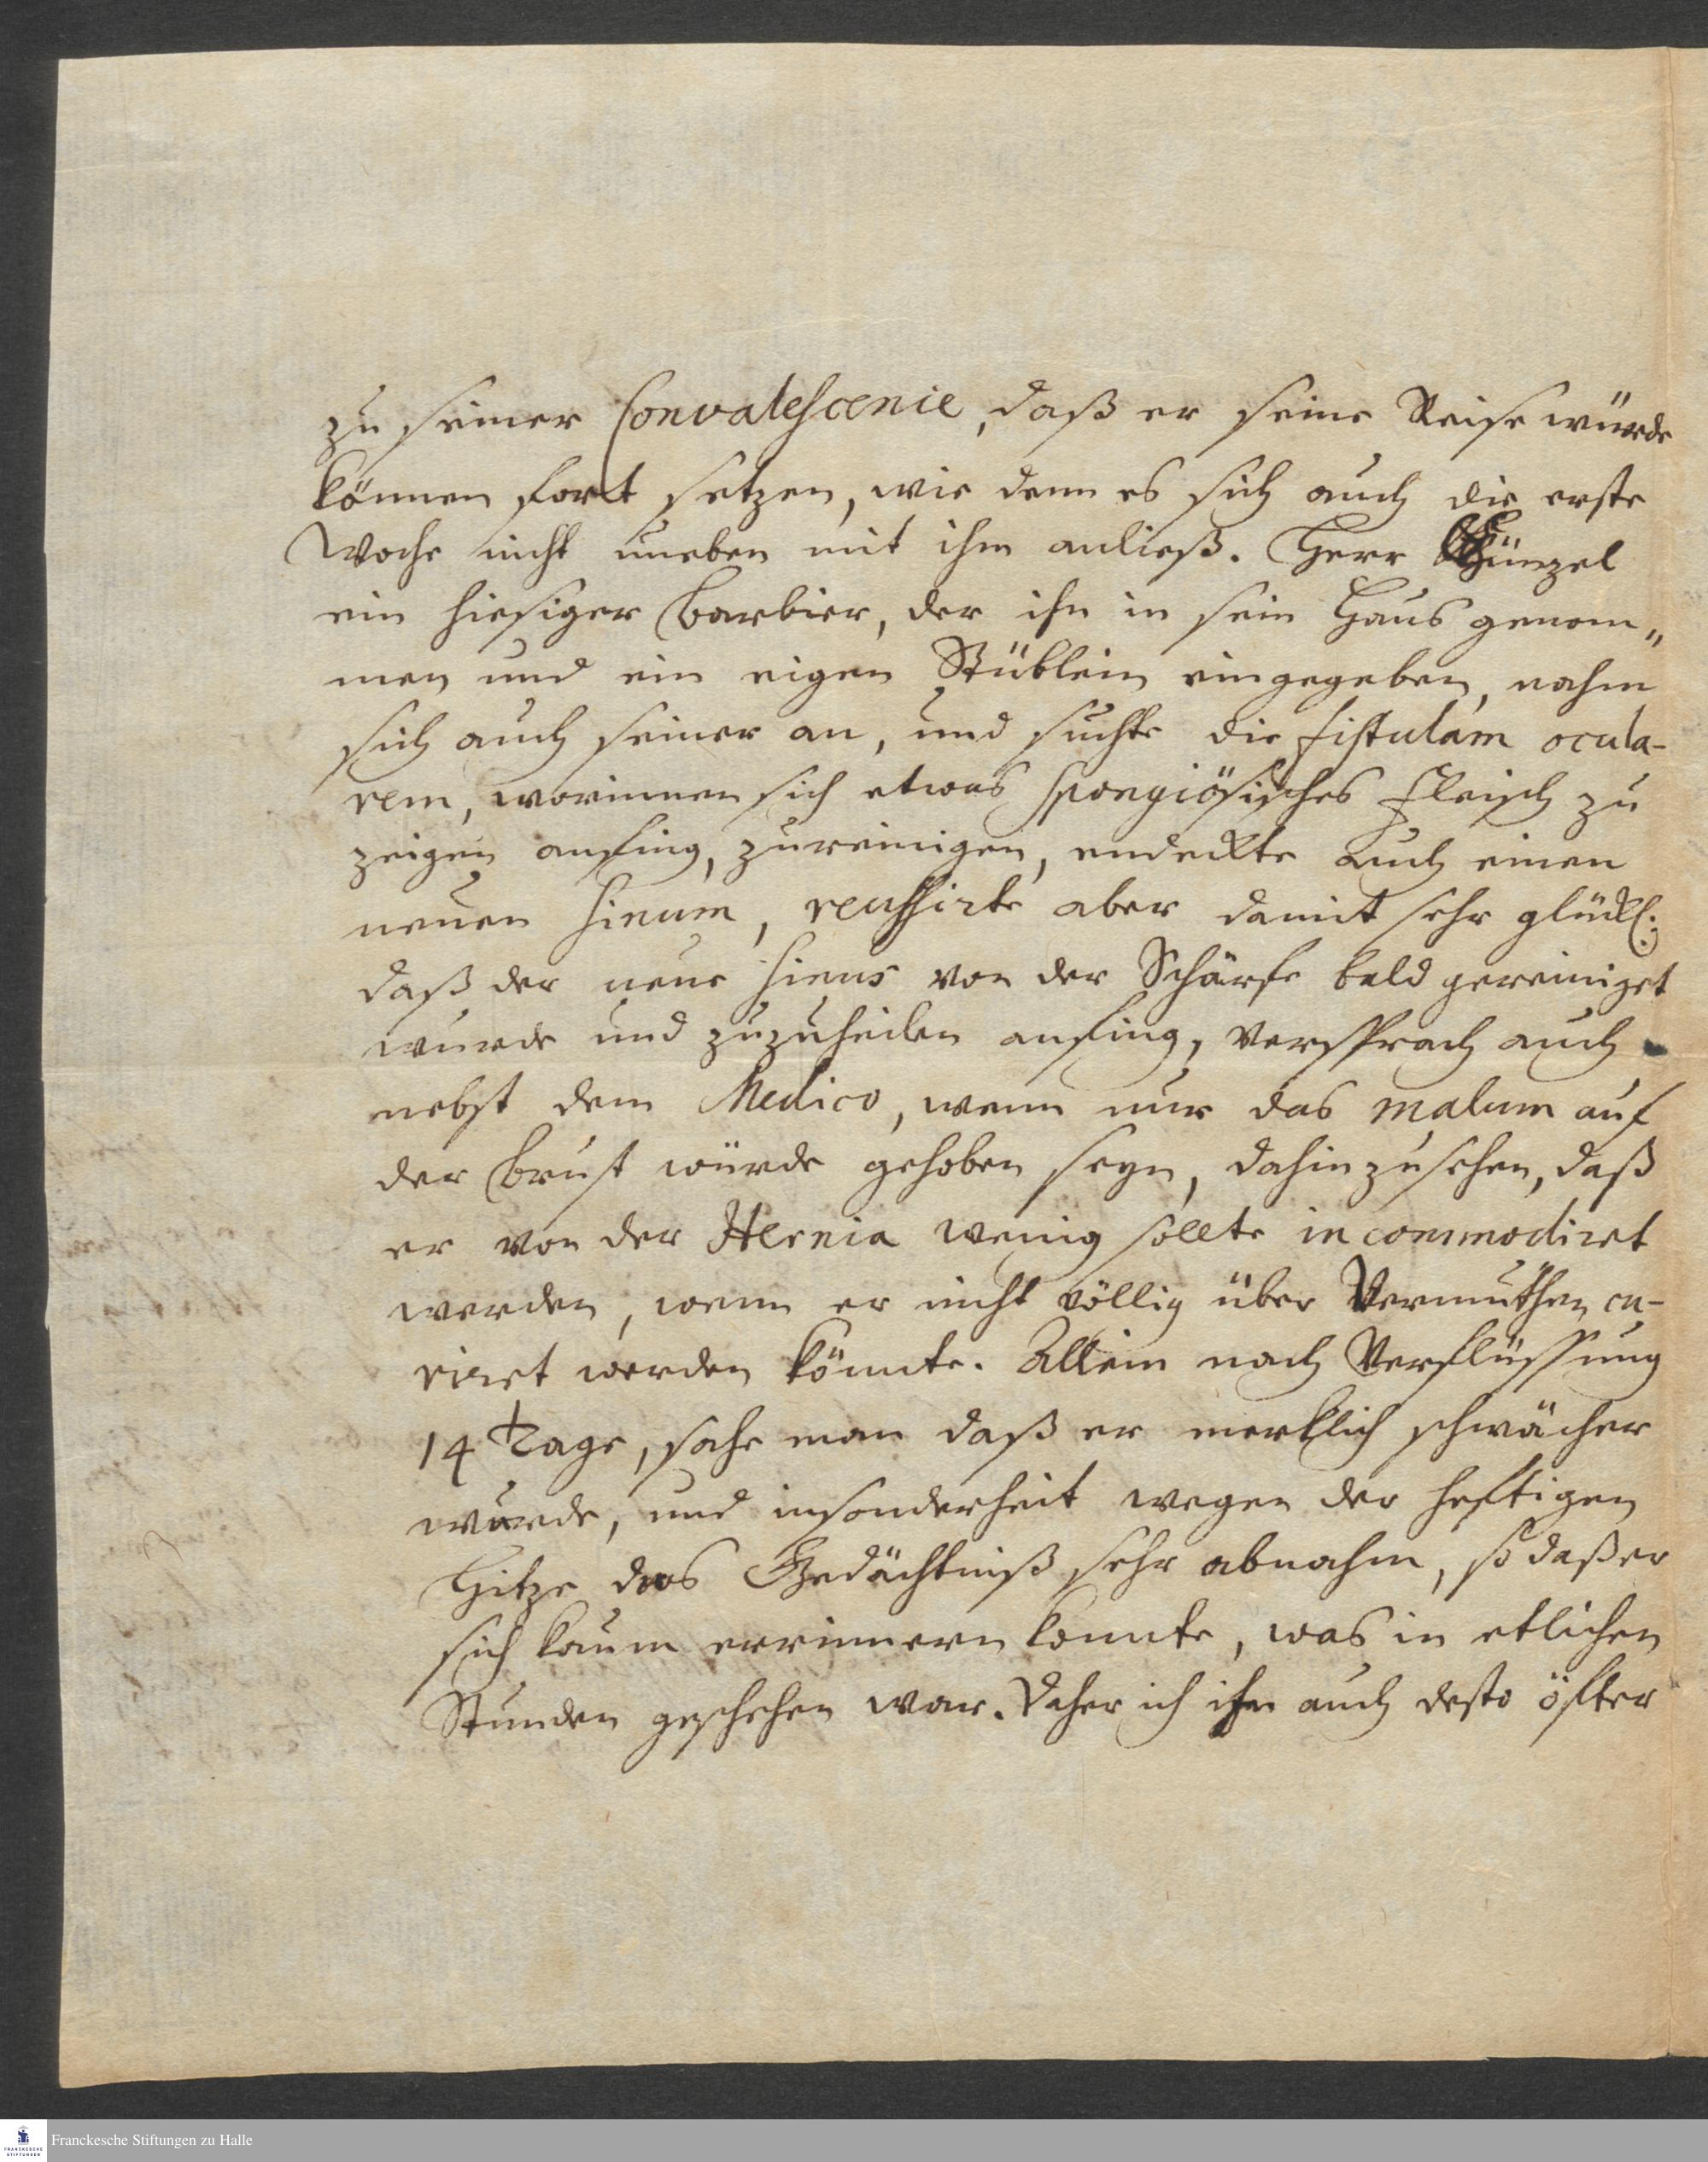 zu seiner Convalescenie, daß er seine Reise würde
können fort setzen, wie denn es sich auch die erste
Woche nicht uneben mit ihm anließ. Herr Künzel
ein hiesiger Barbier, der ihn in sein Haus genom„
men und ein eigen Stüblein eingegeben, nahm
sich auch seiner an, und suchte die fistulam ocula-
rem, worinnen sich etwas spongiösisches Fleisch zu
zeigen anfing, zureinigen, endeckte auch einen
neuen sinum, reussirte aber damit sehr glückl.
daß der neue sinus von der Schärfe bald gereiniget
wurde und zuzuheilen anfing, versprach auch
nebst dem Medico, wenn nur das malum auf
der Brust würde gehoben seyn, dahin zu sehen, daß
er von der Hernia wenig sollte incommodiret
werden, wenn er nicht völlig über Vermuthen cu-
riret werden könnte. Allein nach Verflüssung
14 Tage, sahe man daß er merklich schwächer
wurde, und insonderheit wegen der heftigen
Hitze das Gedächtniß sehr abnahm, so daß er
sich kaum errinnern konnte, was in etlichen
Stunden geschehen war. Daher ich ihn auch desto öfter
Franckesche Stiftungen zu Halle